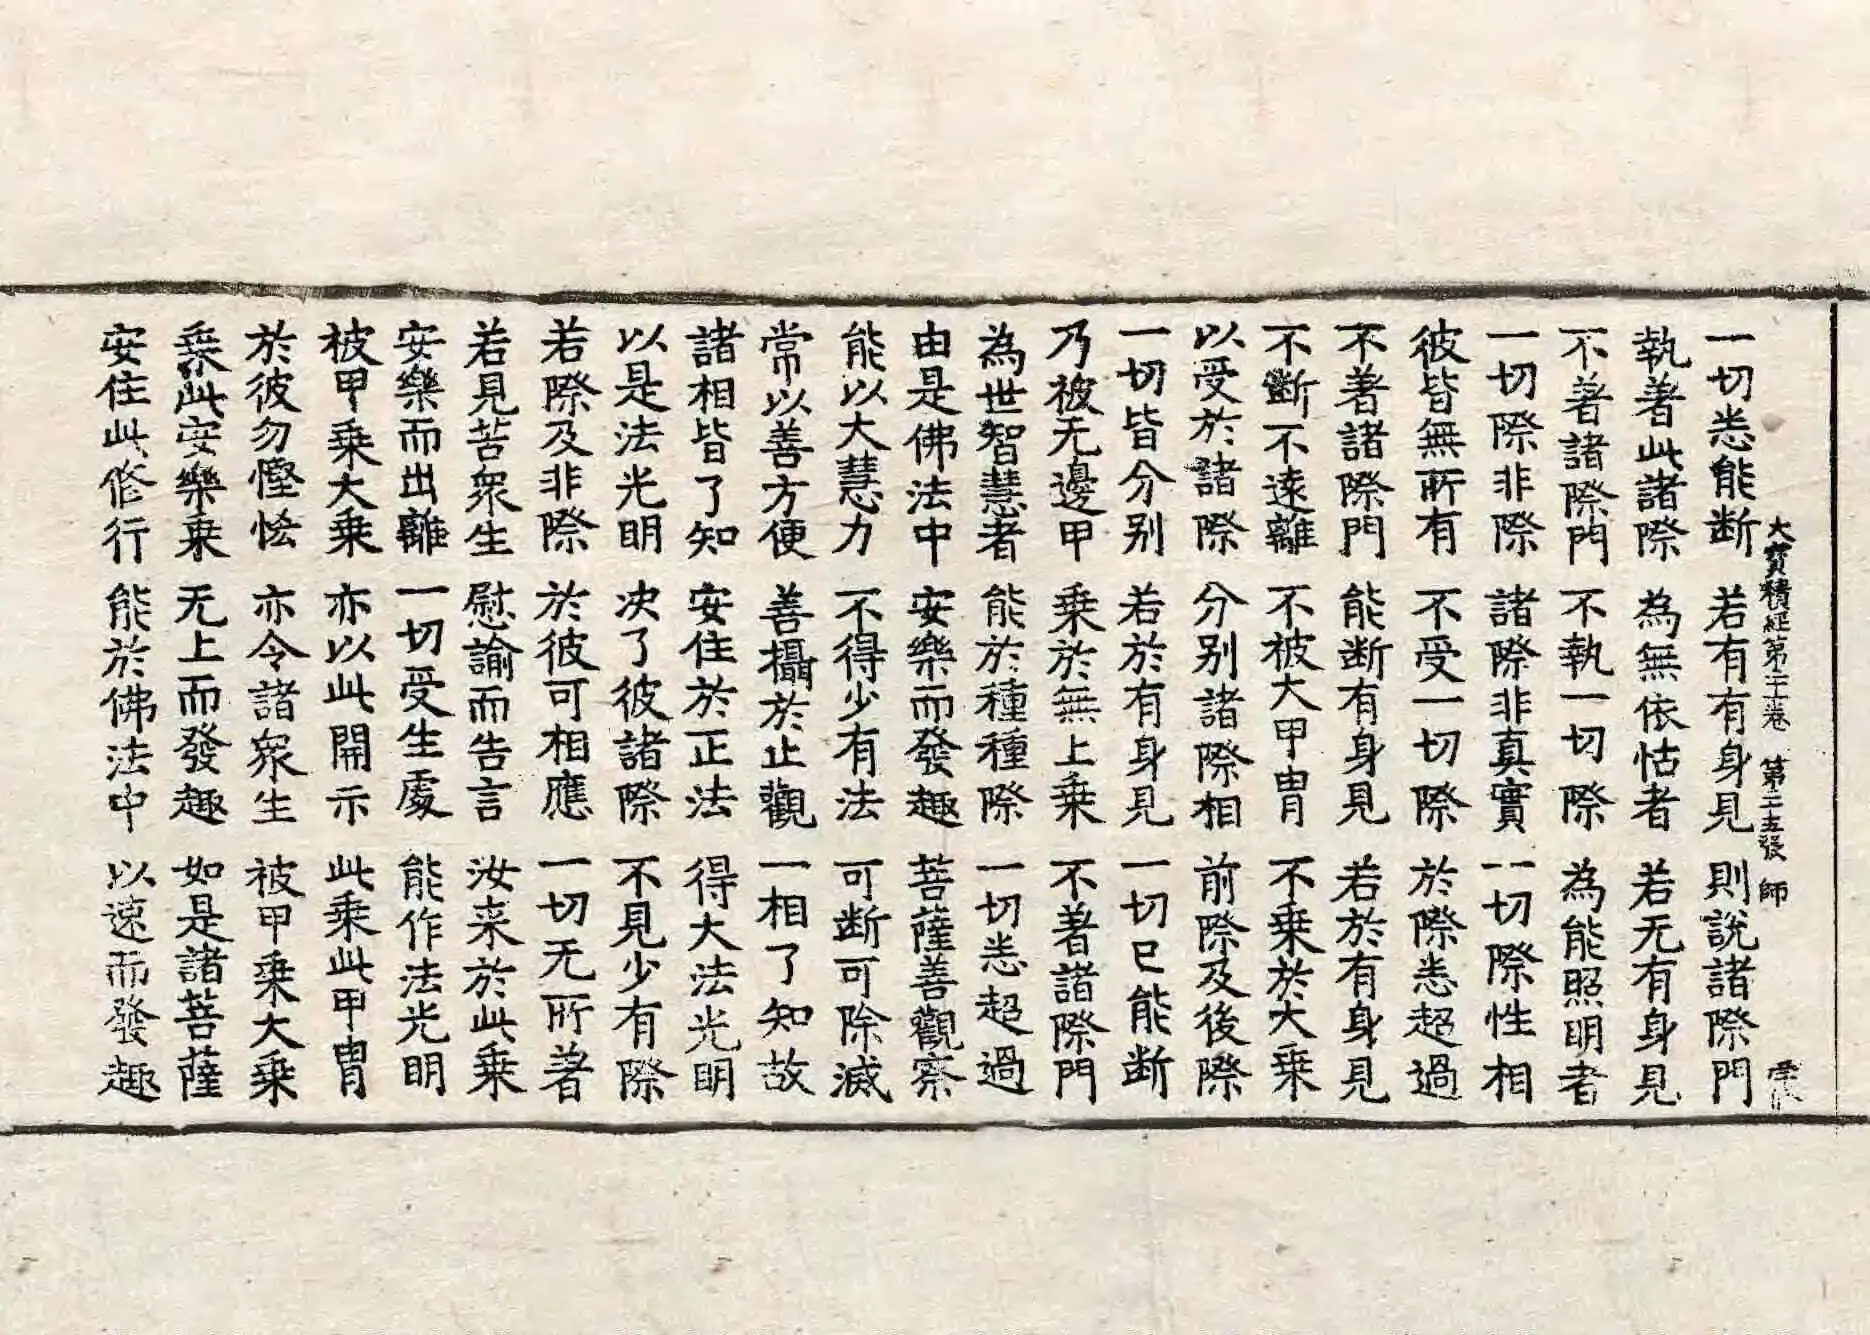 大寶積經第二十三卷 第二十五張 師
一切悉能断 若有有身見 則説諸際門
執著此諸際 為無依怙者 若无有身見
不著諸際門 不執一切際 為能照明者
一切際非際 諸際非真實 一切際性相
彼皆無所有 不受一切際 於際悉超過
不著諸際門 能断有身見 若於有身見
不斷不遠離 不被大甲冑 不乘於大乘
以受於諸際 分别諸際相 前際及後際
一切皆分别 若於有身見 一切已能断
乃被无邊甲 乘於無上乗 不著諸際門
為世智慧者 能於種種際 一切悉超過
由是佛法中 安樂而發趣 菩薩善觀察
能以大慧力 不得少有法 可断可除滅
常以善方便 善攝於止觀 一相了知故
諸相皆了知 安住於正法 得大法光明
以是法光明 决了彼諸際 不見少有際
若際及非際 於彼可相應 一切无所著
若見苦衆生 慰諭而告言 汝来於此乗
安樂而出離 一切受生處 能作法光明
被甲乗大乗 亦以此開示 此乗此甲冑
於彼勿慳悋 亦令諸衆生 被甲乗大乗
乗此安樂乗 无上而發趣 如是諸菩薩
安住此修行 能於佛法中 以速而發趣